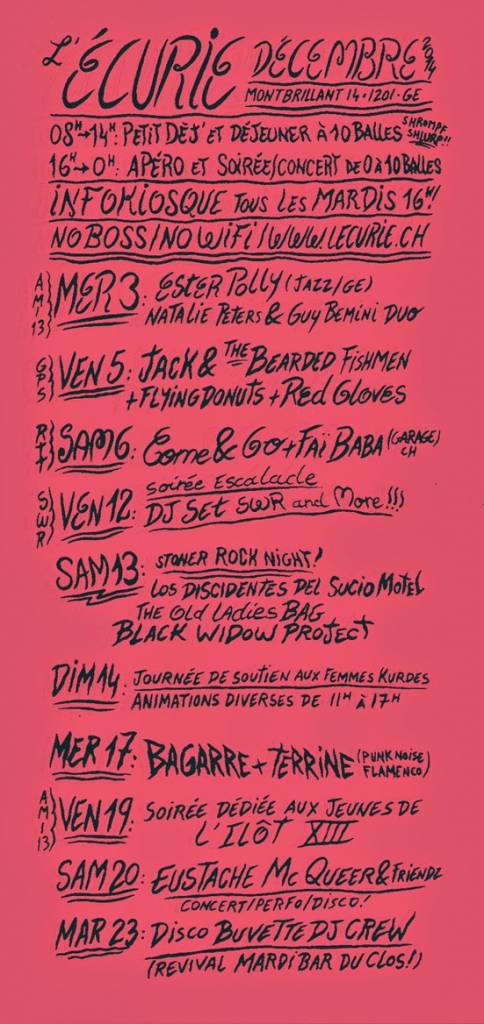 L'ÉCURIE DÉCEMBRE 2014
MONTBRILLANT 14 · 1201 · GE
08H→14H: PETIT DÉJ' ET DÉJEUNER À 10 BALLES SHROMPF SHLURP!!
16H→0H: APÉRO ET SOIRÉE/CONCERT DE 0 À 10 BALLES
INFOKIOSQUE TOUS LES MARDIS 16H!
NO BOSS/NO WIFI/WWW.LECURIE.CH
AMI13 MER 3: ESTER POLLY (JAZZ/GE)
NATALIE PETERS & GUY BEMINI DUO
GPS VEN 5: JACK & THE BEARDED FISHMEN
+ FLYING DONUTS + RED GLOVES
RTT SAM 6: COME & GO + FAÏ BABA (GARAGE) CH
SWR VEN 12: Soirée Escalade
DJ SET SWR and More!!!
SAM 13: STONER ROCK NIGHT!
LOS DISCIDENTES DEL SUCIO MOTEL
THE OLD LADIES BAG
BLACK WIDOW PROJECT
DIM 14: JOURNÉE DE SOUTIEN AUX FEMMES KURDES
ANIMATIONS DIVERSES DE 11H À 17H
MER 17: BAGARRE + TERRINE (PUNK NOISE FLAMENCO)
AMI13 VEN 19: SOIRÉE DÉDIÉE AUX JEUNES DE
L'ILÔT XIII
SAM 20: EUSTACHE MC QUEER & FRIENDZ
CONCERT/PERFO/DISCO!
MAR 23: DISCO BUVETTE DJ CREW
(REVIVAL MARDI BAR DU CLOS!)